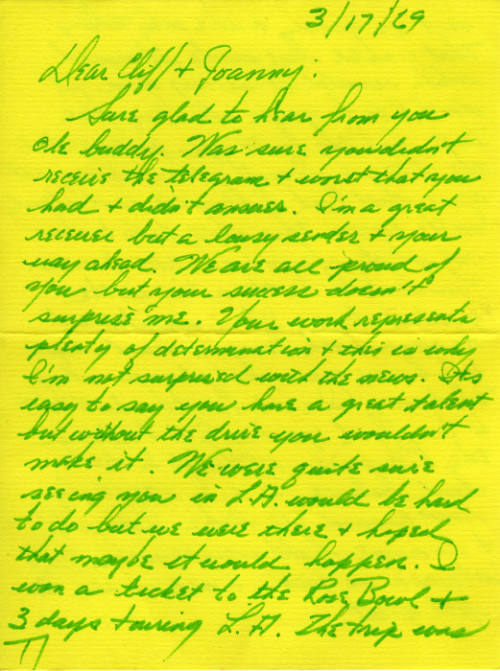 3/17/69
Dear Cliff + Joanny:
Sure glad to hear from you
ole buddy. Was sure you didn't
receive the telegram + worst that you
had + didn't answer. I'm a great
receiver but a lousy sender + your
way ahead. We are all proud of
you but your success doesn't
surprise me. Your work represents
plenty of determination + this is why
I'm not surprised with the news. Its
easy to say you have a great talent
but without the drive you wouldn't
make it. We were quite sure
seeing you in L.A. would be hard
to do but we were there + hoped
that maybe it would happen. I
won a ticket to the Rose Bowl +
3 days touring L.A. The trip was